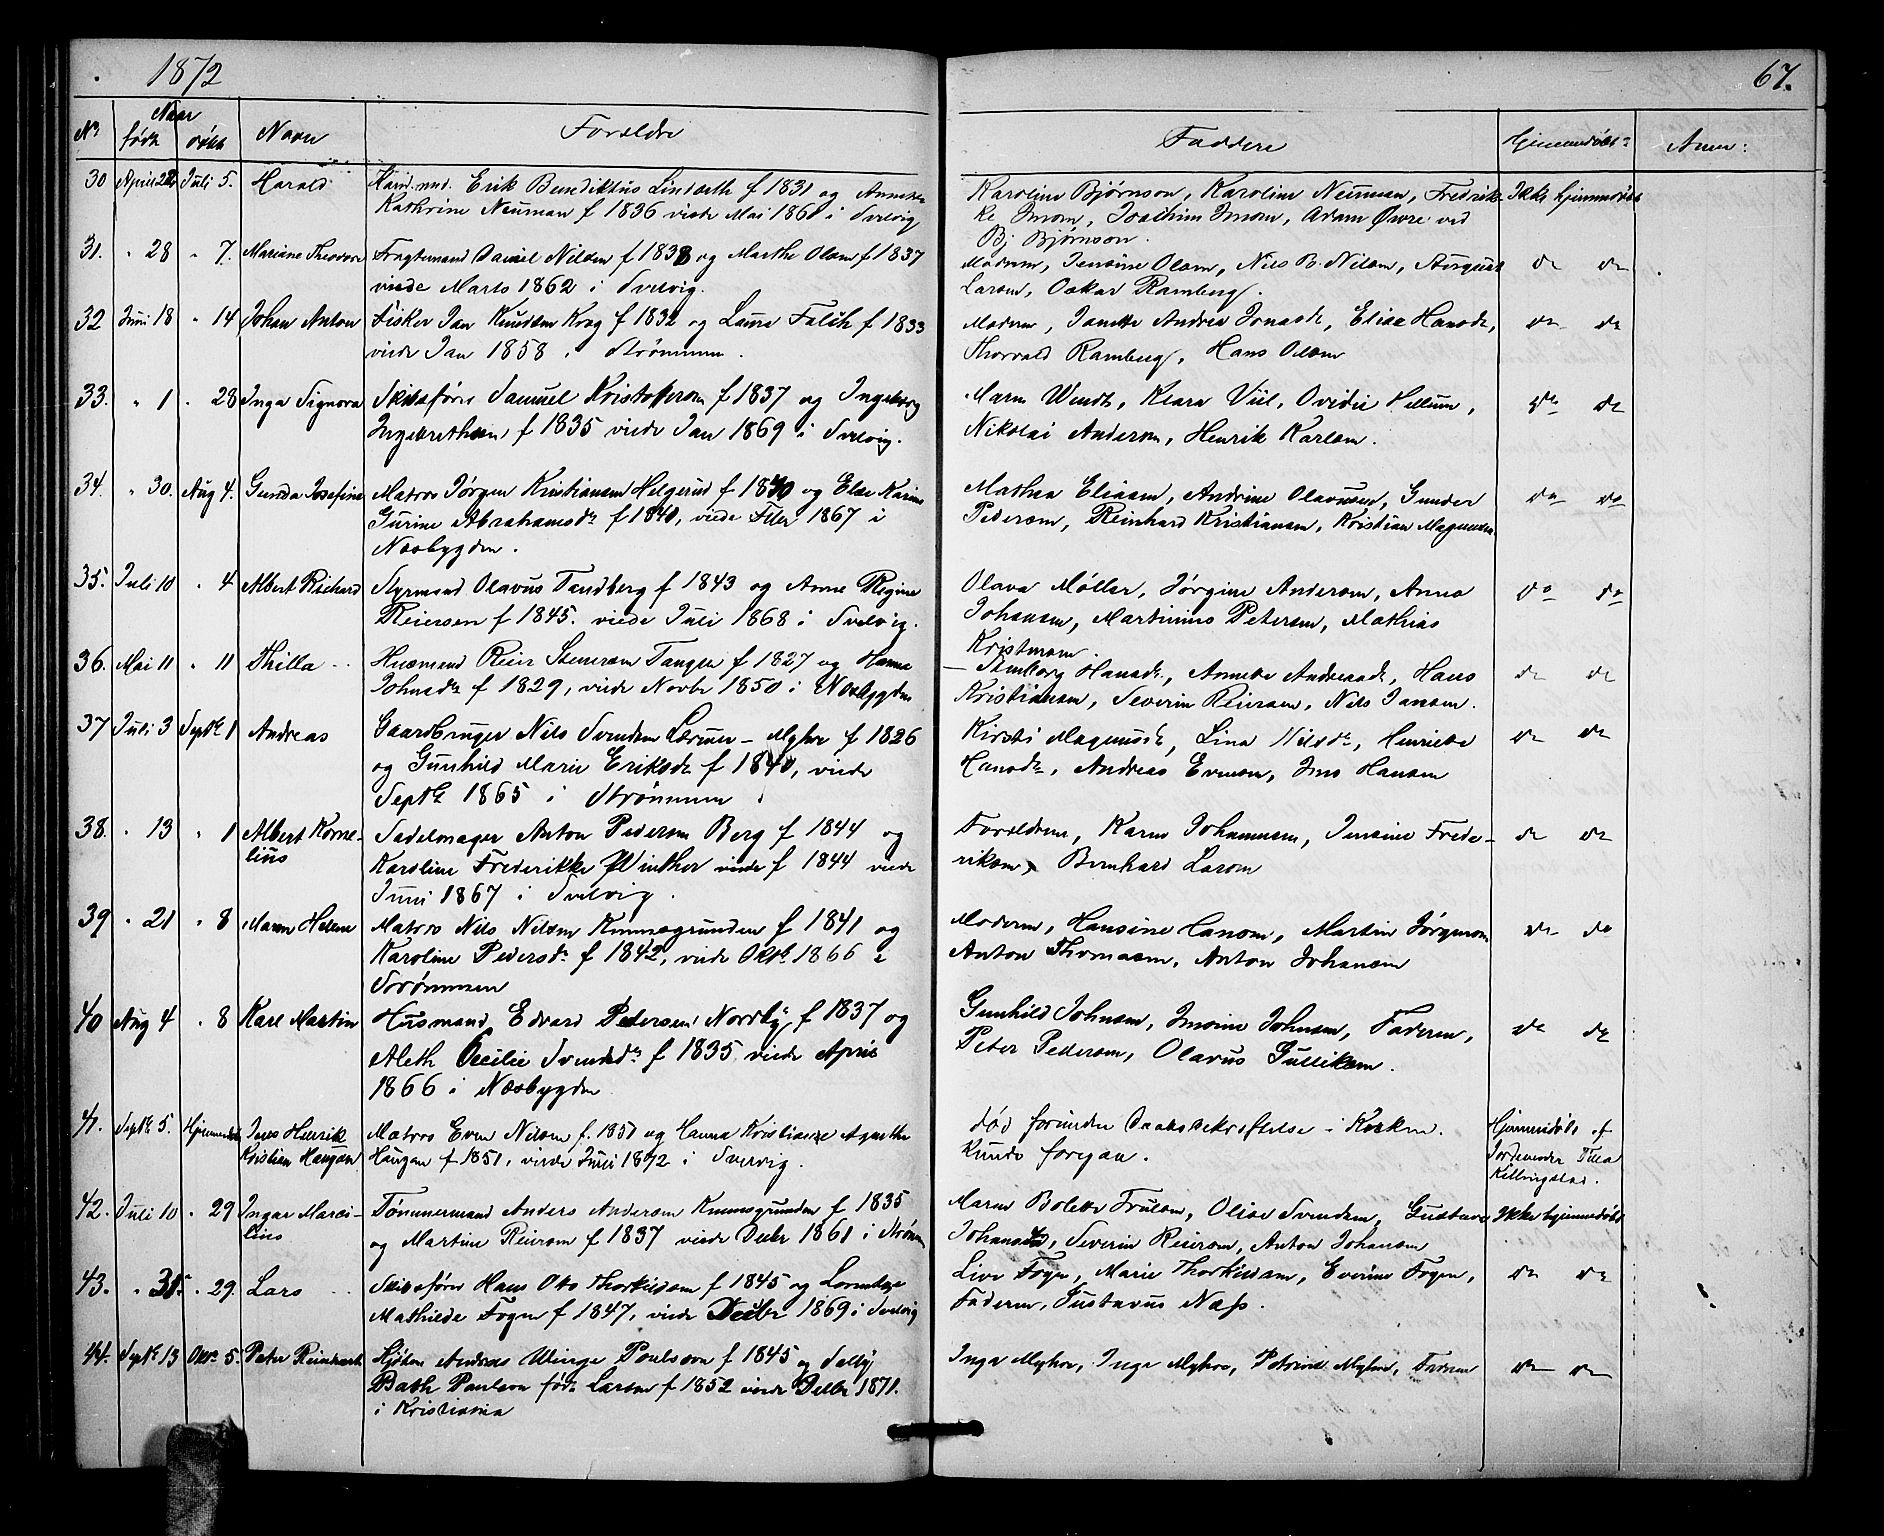 1872
67.
No Naar født døbt Navn Forældre Faddere Hjemmedøbt Anm:
30 April 22 Juli 5. Harald Erik Bendiktus Lindseth f 1831 og Annette
Kathrine Neuman f 1836 viede Mai 1860 i Svelvig
Karoline Bjørnson, Karoline Neuman, Fredrik-
ke Imom, Joachim Imom, Adam Øvre ved
Bj Bjørnson.
Ikke hjemmedøbt
31. " 28 " 7. Mariane Theodora Fragtemand Daniel Nilsen f 1838 og Marthe Olsen f 1837
viede Marts 1862 i Svelvig.
Moderen, Jensine Olsen, Nils B. Nilsen, August
Larsen, Oskar Ramberg.
do do
32 Juni 18 " 14 Johan Anton Fisker Jan Knudsen Krog f 1832 og Laura Falch f 1833
viede Jan 1858 i Strømmen.
Moderen, Janette Andrea Jonasdr, Elise Hansdr,
Thorvald Ramberg, Hans Olsen
do do
33. " 1 " 28 Inga Signora Skibsfører Samuel Kristoffersen f 1837 og Ingeborg
Ingebrethsen f 1835 viede Jan 1869 i Svelvig.
Maren Wendt, Klara Viil, Ovidie Hellum,
Nikolai Andersen, Henrik Karlsen.
do do
34. " 30. Aug 4. Gunda Josefine Matros Jørgen Kristiansen Helgerud f 1840 og Else Karine
Gurine Abrahamsdr f 1841, viede Febr 1867 i
Næsbygden.
Mathea Eliasen, Andrine Olavusen, Gunder
Pedersen, Reinhard Kristiansen, Kristian Magnusen
do do
35. Juli 10 " 4. Albert Richard Styrmand Olavus Tandberg f 1843 og Anne Regine
Reiersen f 1845. viede Juli 1868 i Svelvig.
Olava Møller, Jørgine Andersen, Anna
Johansen, Martinius Petersen, Mathias
Kristensen.
do do
36. Mai 11 " 11 Thilla Husmand Reier Stenersen Tangen f 1827 og Hanna
Johnsdr f 1829, viede Novbr 1850 i Næsbygden
Hansdr, Annette Andreasdr, Hans
Kristiansen, Severin Reiersen, Nils Jansen.
do do
37 Juli 3 Septbr 1 Andreas Gaardbruger Nils Svendsen Lærum-Myhre f 1826
og Gunhild Marie Eriksdr f 1840, viede
Septbr 1865 i Strømmen.
Kirsti Magnusdr, Lina Nilsdr, Henriette
Hansdr, Andreas Evensen, Jens Hansen
do do
38. " 13 " 1 Albert Korne-
lius
Sadelmager Anton Pedersen Berg f 1844 og
Karoline Frederikke Winther viede f 1844 viede
Juni 1867 i Svelvig.
Forældrene, Karen Johannesen, Jensine Frede-
riksen, Bernhard Larsen
do do
39 " 21 " 8 Maren Helene Matros Nils Nilsen Kommegrunden f 1841 og
Karoline Pedersdr f 1842, viede Oktbr 1866 i
Strømmen
Moderen, Hansine Hansen, Martin Jørgensen
Anton Thomasen, Anton Johansen
do do
40 Aug 4 " 8 Karl Martin Husmand Edvard Pedersen Nordby f 1837 og
Aleth Cecilie Svendsdr f 1835 viede April
1866 i Næsbygden
Gunhild Johnsen, Imine Johnsen, Faderen,
Peter Pedersen, Olavus Gulliksen.
do do
41. Septbr 5. Hjemmedøbt Jens Henrik
Kristian Haugan
Matros Even Nilsen f. 1851 og Hanna Kristianse Agnethe
Haugan f 1851, viede Juni 1872 i Svelvig.
død forinden Daabsbekræftelse i Kirken
kunde foregaa.
Hjemmedøbt af
Jordemoder Tilla
Killingstad.
42. Juli 10 " 29 Ingar Marci-
lius
Tømmermand Anders Andersen Kommegrunden f 1835
og Martine Reiersen f 1837 viede Decbr 1861 i Strømm
Maren Bolette Frulsen, Olise Svendsen, Gustava
Johansen, Severin Reiersen, Anton Johansen
Ikke hjemmedøbt
43. " 31 " 29. Lars Skibsfører Hans Oto Thorkildsen f 1845 og Lorentze
Mathilde Fogen f 1847, viede Decbr 1869 i Svelvig
Live Fogen, Marie Thorkildsen, Everine Fogen,
Faderen, Gustavus Næss.
do do
44. Septbr 13 Oktbr 5. Peter Reinhardt Andreas Winge Poulsson f 1845 og Selly
Bath Paulsen født Larsen f 1852 viede Decbr 1871.
i Kristiania
Inga Myhre, Inga Myhre, Petrine Myhre, Faderen
do do